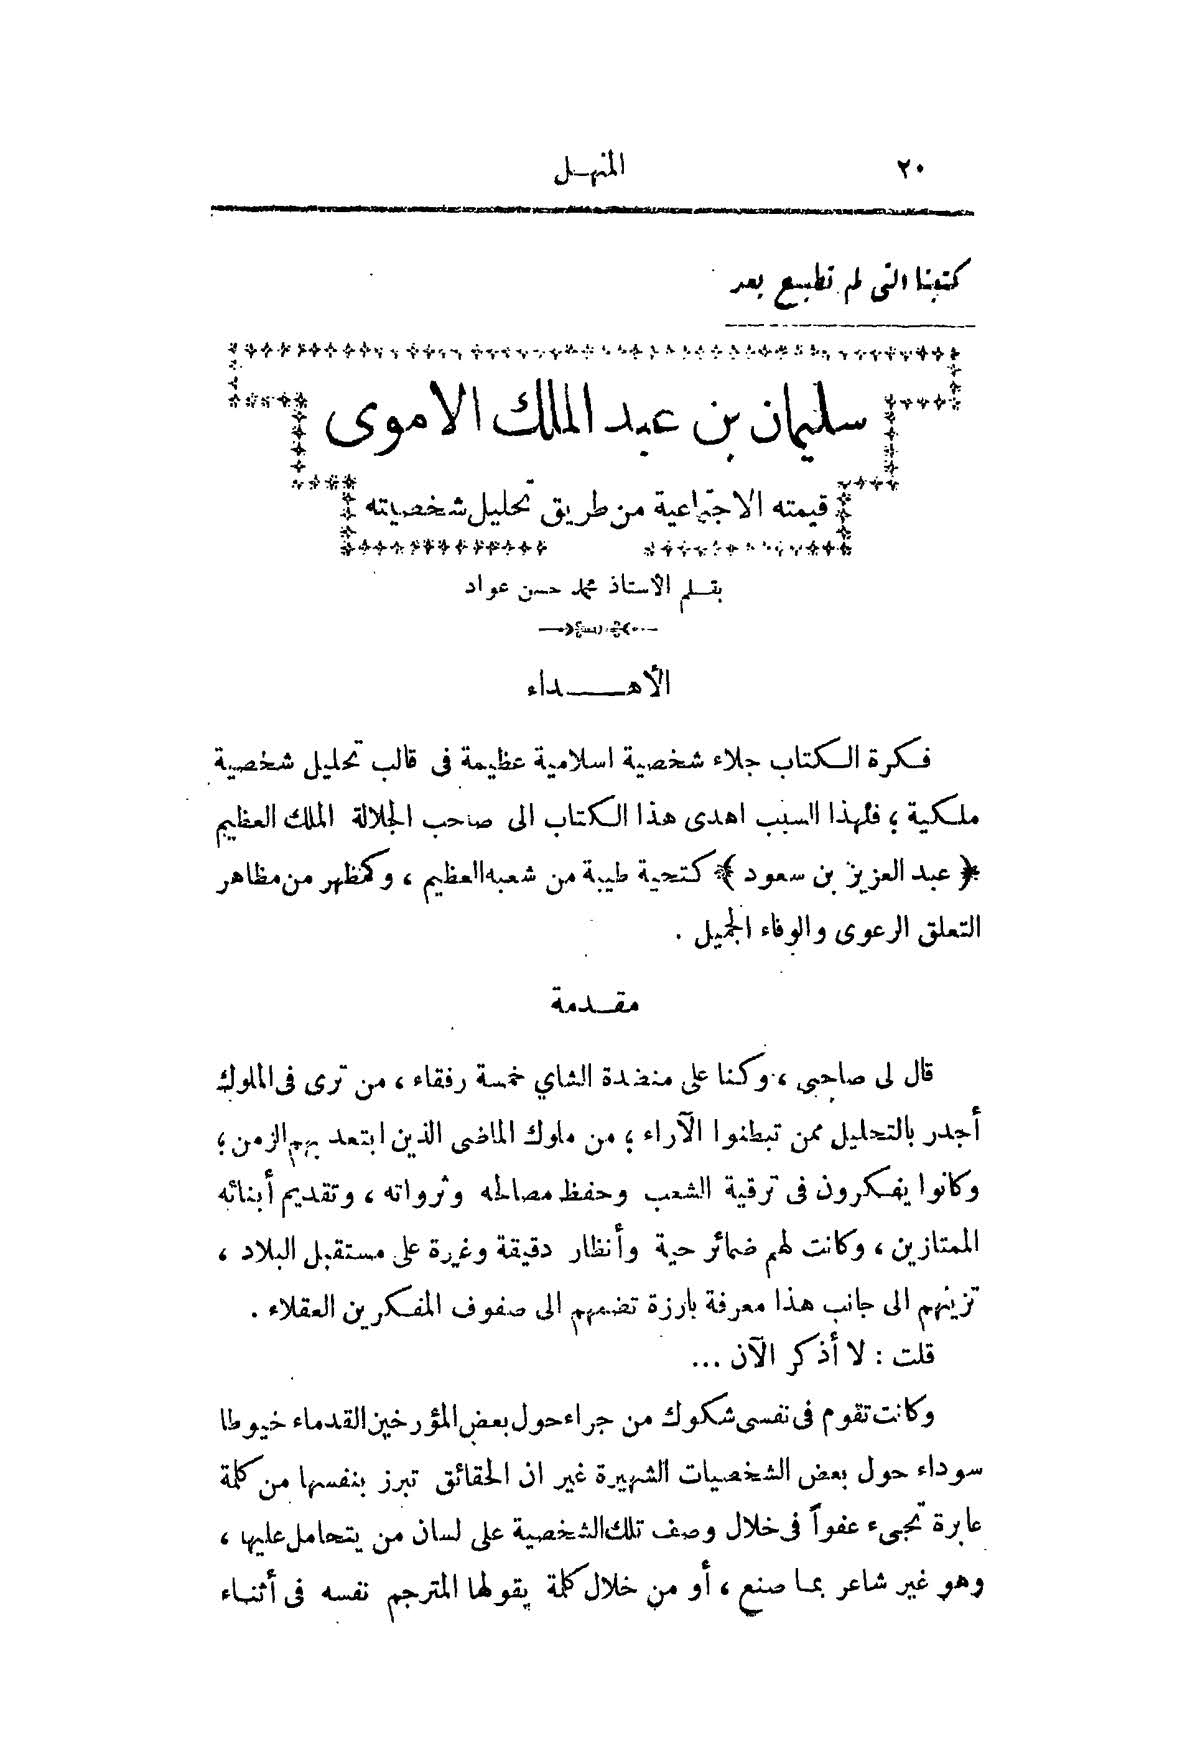 ٢٠
المنهـل
كتبنا التى لم تطبع بعد
سليمان بن عبد الملك الاموى
قيمته الاجتماعية من طريق تحليل شخصيته
بقـلم الأستاذ محمد حسن عواد
الأهـــداء
فـكرة الـكتاب جلاء شخصية اسلامية عظيمة فى قالب تحليل شخصية
ملـكية ؛ فلهذا السبب اهدى هذا الـكتاب الى صاحب الجلالة الملك العظيم
﴿ عبد العزيز بن سعود ﴾ كتحية طيبة من شعبه العظيم ، وكمظهر من مظاهر
التعلق الرعوى والوفاء الجميل .
مقـدمة
قال لى صاحبى ، وكنا على منضدة الشاي خمسة رفقاء ، من ترى فى الملوك
أجدر بالتحليل ممن تبطنوا الآراء ؛ من ملوك الماضى الذين ابتعد بهم الزمن ؛
وكانوا يفـكرون فى ترقية الشعب وحفظ مصالحه وثرواته ، وتقديم أبنائه
الممتازين ، وكانت لهم ضمائر حية وأنظار دقيقة وغيرة على مستقبل البلاد ،
تزينهم الى جانب هذا معرفة بارزة تضمهم الى صفوف المفـكرين العقلاء .
قلت : لا أذكر الآن ...
وكانت تقوم فى نفسى شكوك من جراء حول بعض المؤرخين القدماء خيوطا
سوداء حول بعض الشخصيات الشهيرة غير ان الحقائق تبرز بنفسها من كلمة
عابرة تجىء عفواً فى خلال وصف تلك الشخصية على لسان من يتحامل عليها ،
وهو غير شاعر بمـا صنع ، أو من خلال كلمة يقولها المترجم نفسه فى أثنـاء